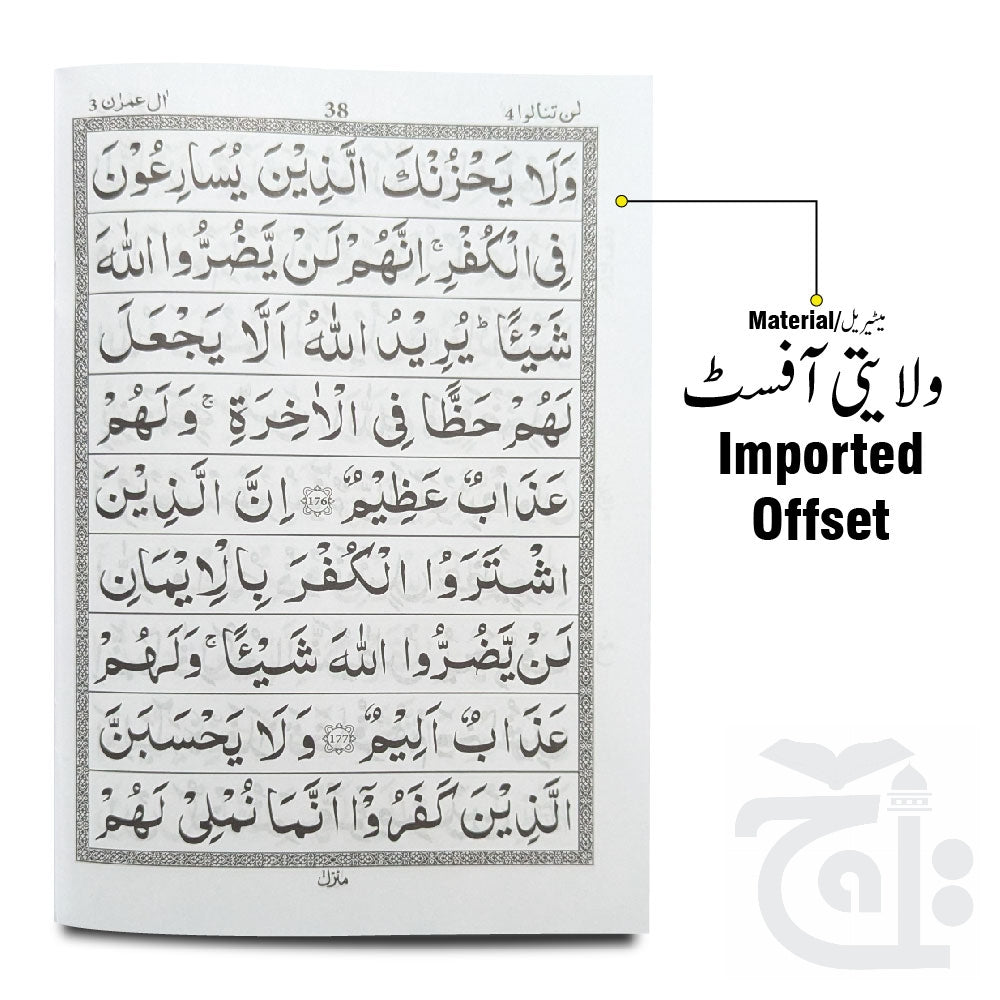 لن تنالوا 4
38
اٰل عمرٰن 3
وَلَا يَحْزُنْكَ الَّذِيْنَ يُسَارِعُوْنَ
فِى الْكُفْرِ ۚ اِنَّهُمْ لَنْ يَّضُرُّوا اللّٰهَ
شَيْـًٔا ؕ يُرِيْدُ اللّٰهُ اَلَّا يَجْعَلَ
لَهُمْ حَظًّا فِى الْاٰخِرَةِ ۚ وَلَهُمْ
عَذَابٌ عَظِيْمٌ 176 اِنَّ الَّذِيْنَ
اشْتَرَوُا الْكُفْرَ بِالْاِيْمَانِ
لَنْ يَّضُرُّوا اللّٰهَ شَيْـًٔا ۚ وَلَهُمْ
عَذَابٌ اَلِيْمٌ 177 وَلَا يَحْسَبَنَّ
الَّذِيْنَ كَفَرُوْٓا اَنَّمَا نُمْلِىْ لَهُمْ
منزل
Material/میٹیریل
ولایتی آفسٹ
Imported
Offset